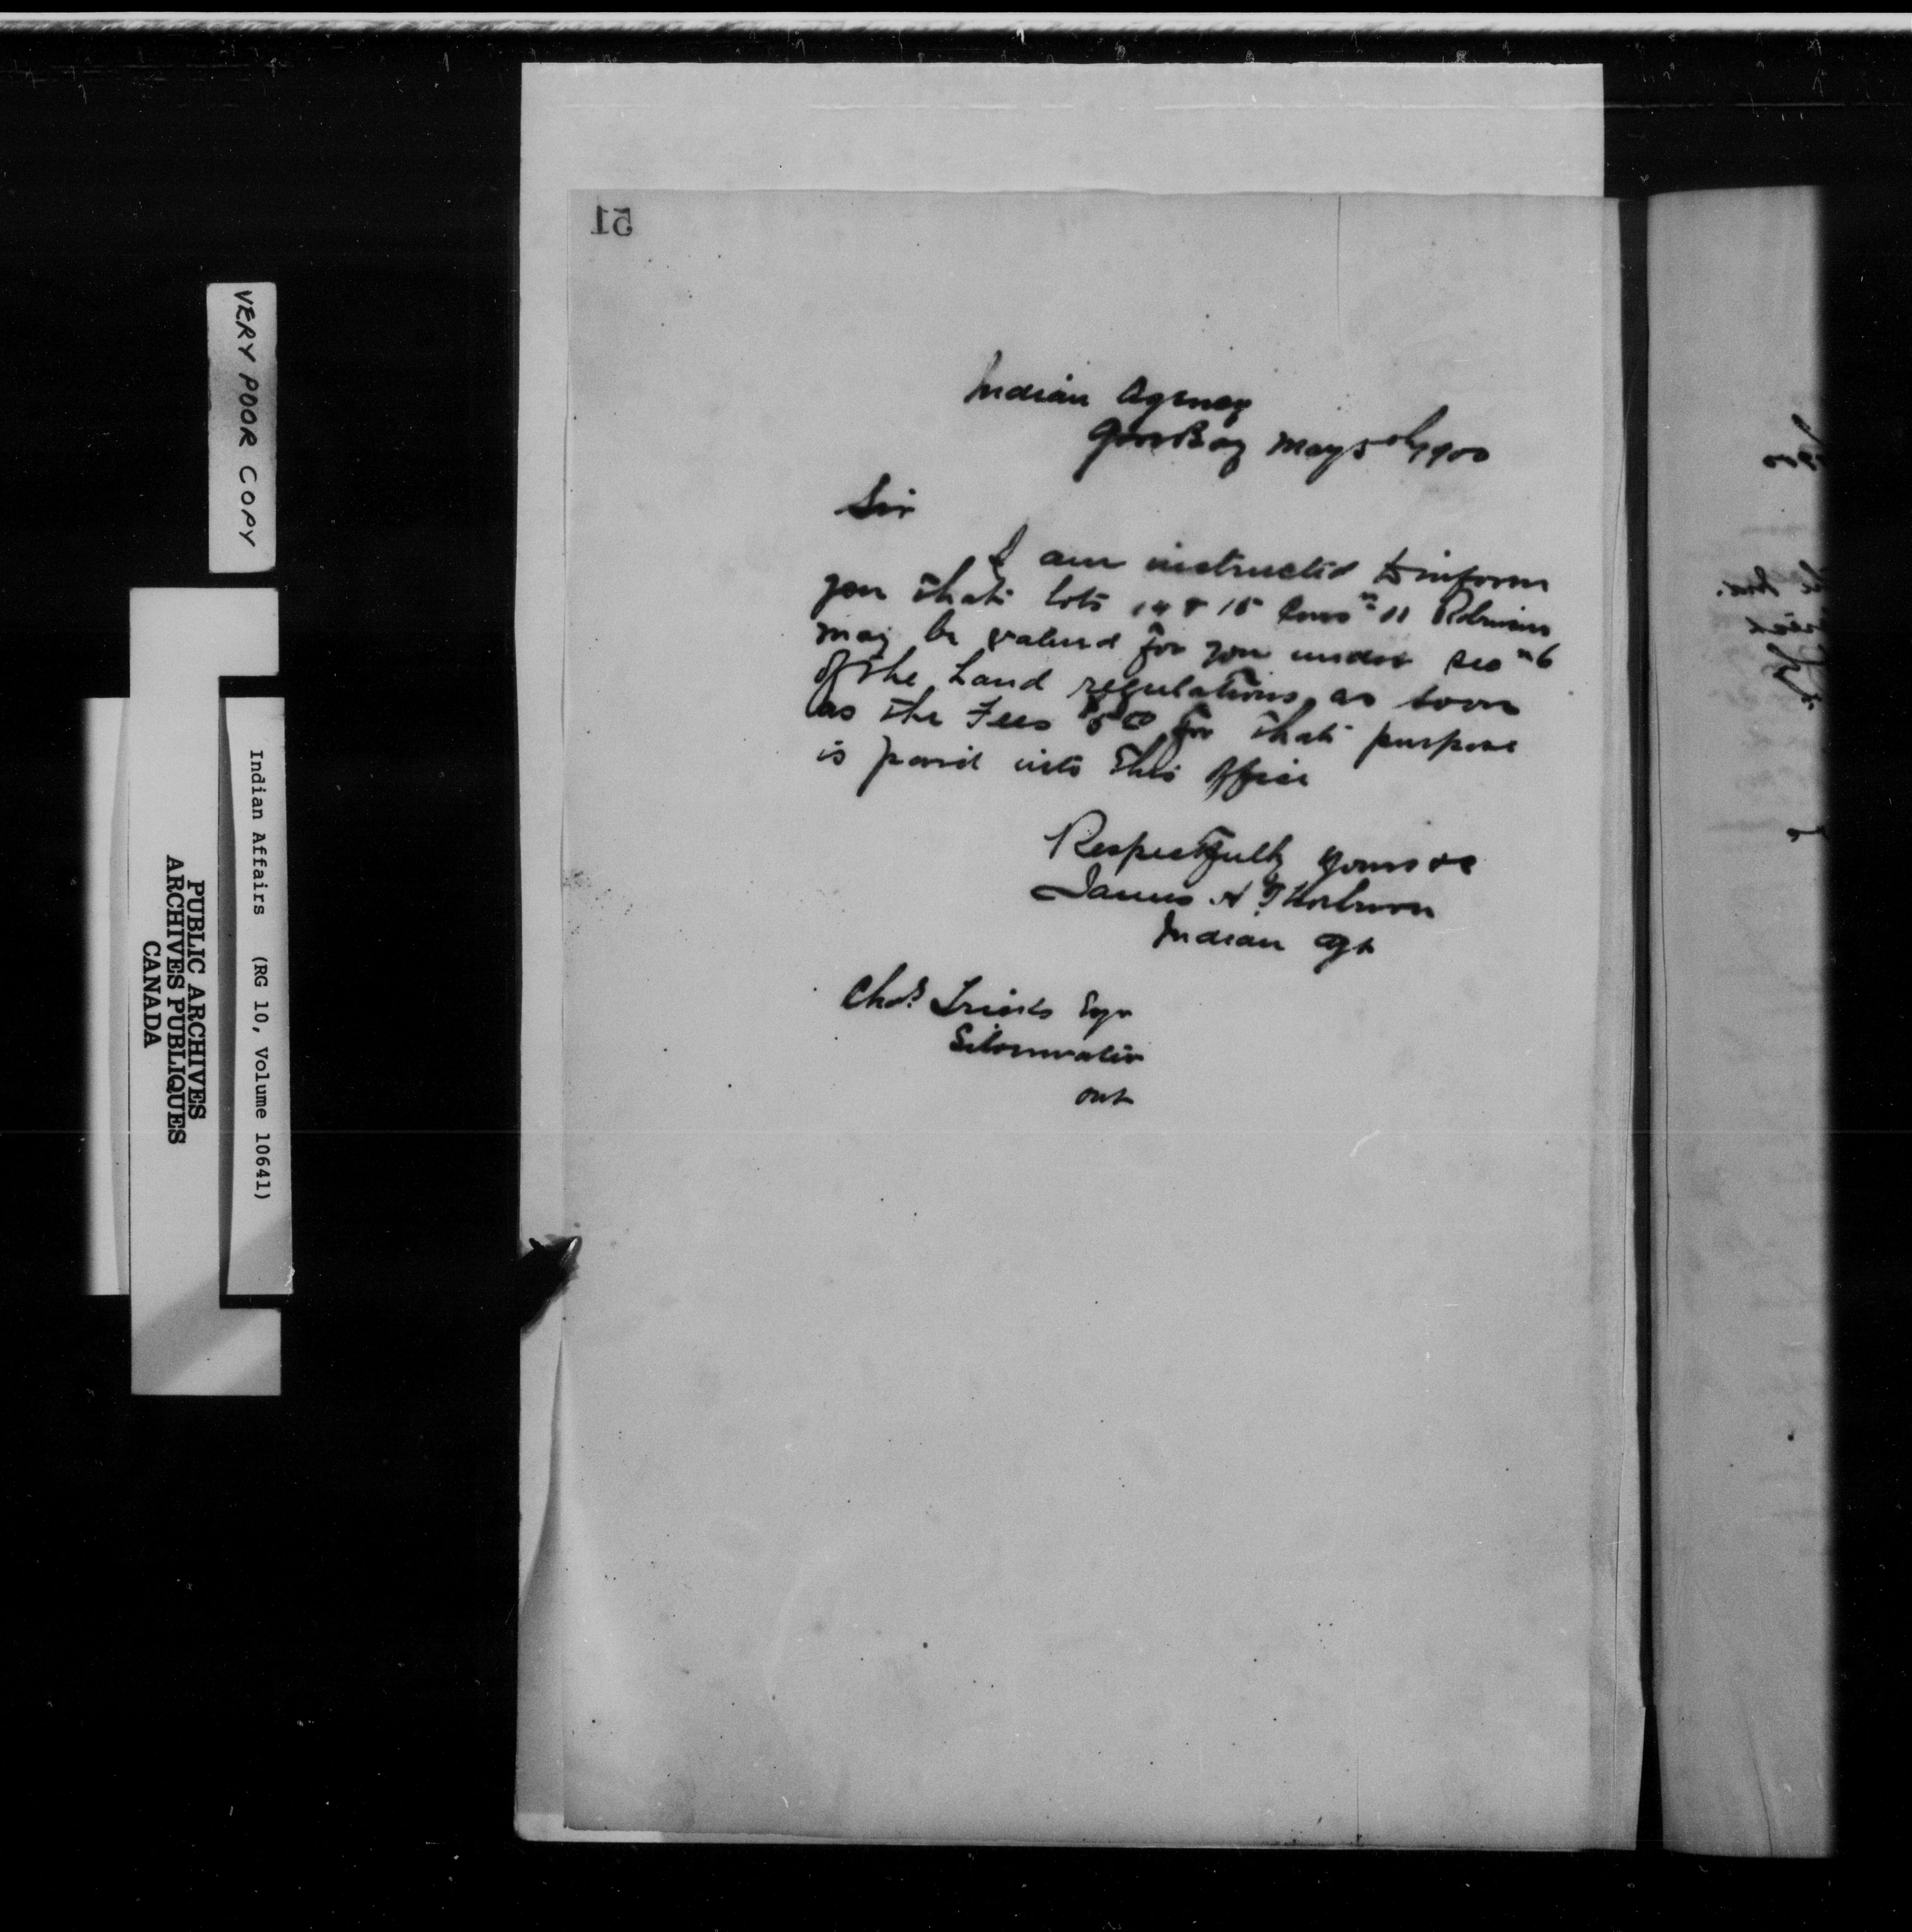 51
Indian Agency
Gore Bay May 5th 1900
Sir
I am instructed to inform
you that lots 14 & 15 Con 11 Robinson
may be valued for you under sec 6
of the Land regulations as soon
as the Fees for that purpose
is paid into this office
Respectfully yours &c
James H Thorburn
Indian Agt
Chas
Silverwater
Ont
VERY POOR COPY
Indian Affairs (RG 10, Volume 10641)
PUBLIC ARCHIVES
ARCHIVES PUBLIQUES
CANADA